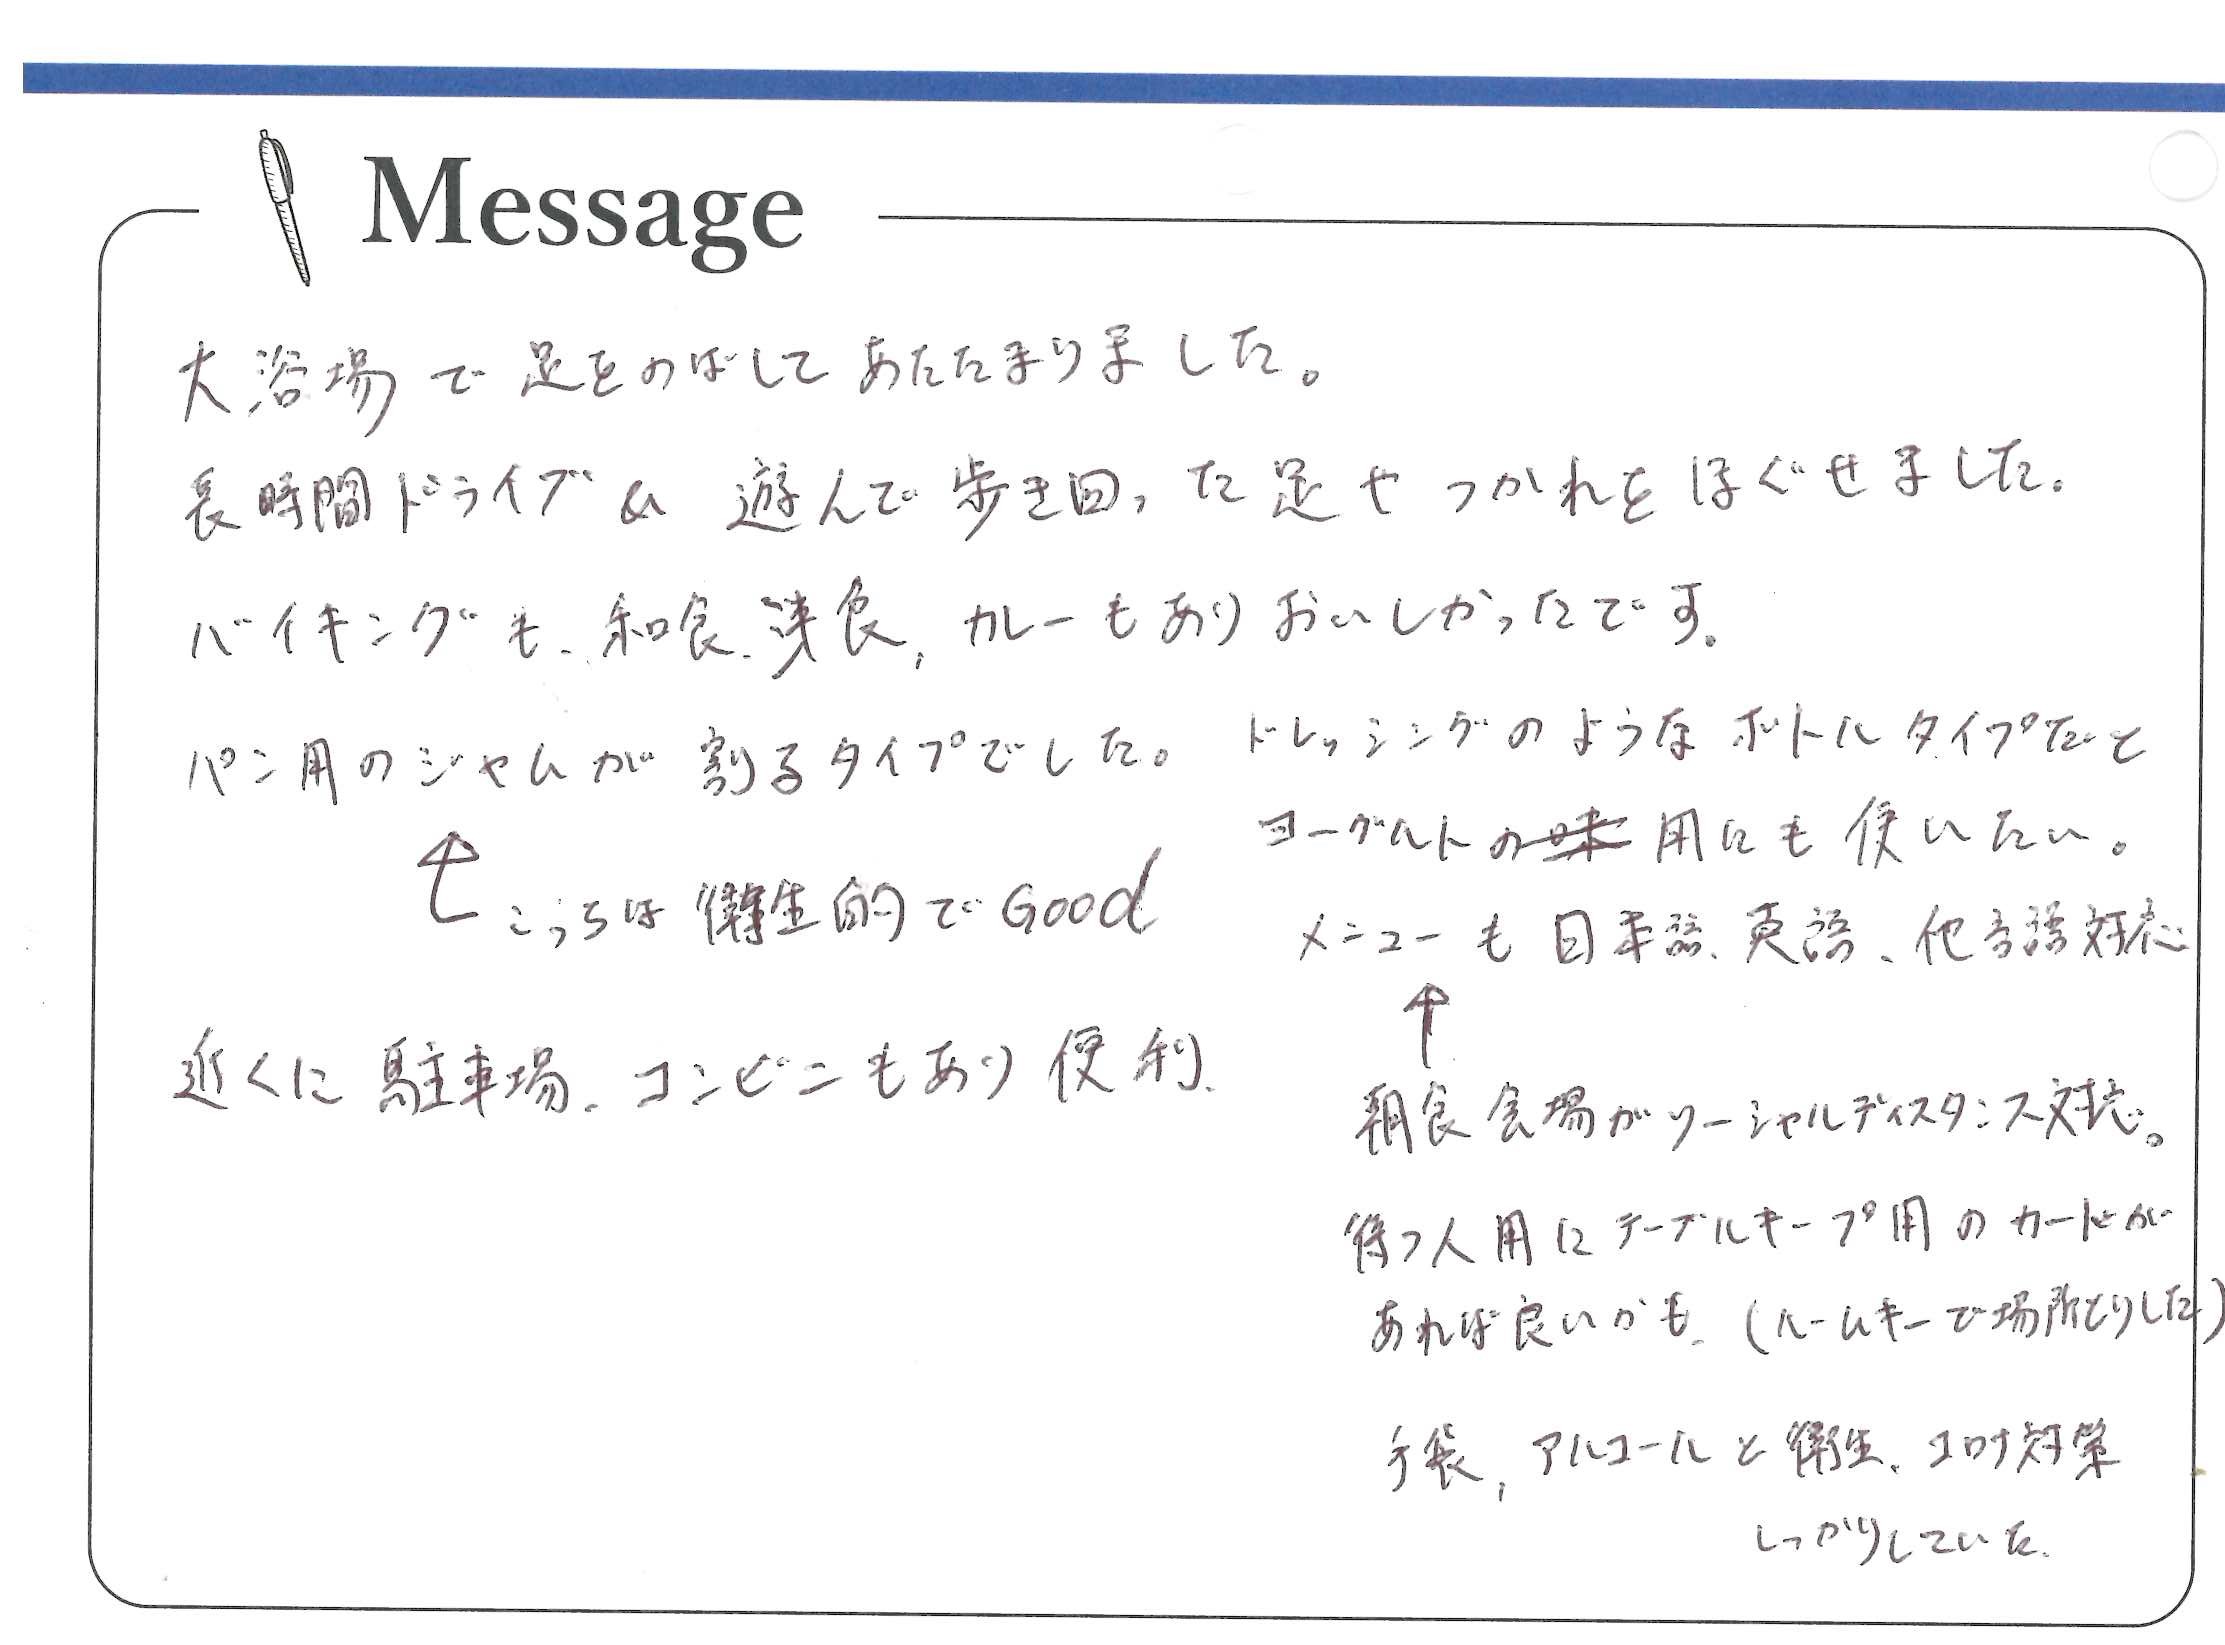 Message
大浴場で足をのばしてあたたまりました。
長時間ドライブ & 遊んで歩き回った足やつかれをほぐせました。
バイキングも、和食、洋食, カレーもありおいしかったです。
パン用のジャムが割るタイプでした。
↑こっちは衛生的でGood
近くに駐車場、コンビニもあり便利、
ドレッシングのようなボトルタイプだと
ヨーグルトの用にも使いたい。
メニューも日本語、英語、他言語対応
↑
朝食会場がソーシャルディスタンス対応。
待つ人用にテーブルキープ用のカードが
あれば良いかも、(ルームキーで場所とりした)
手袋, アルコールと衛生、コロナ対策
しっかりしていた。